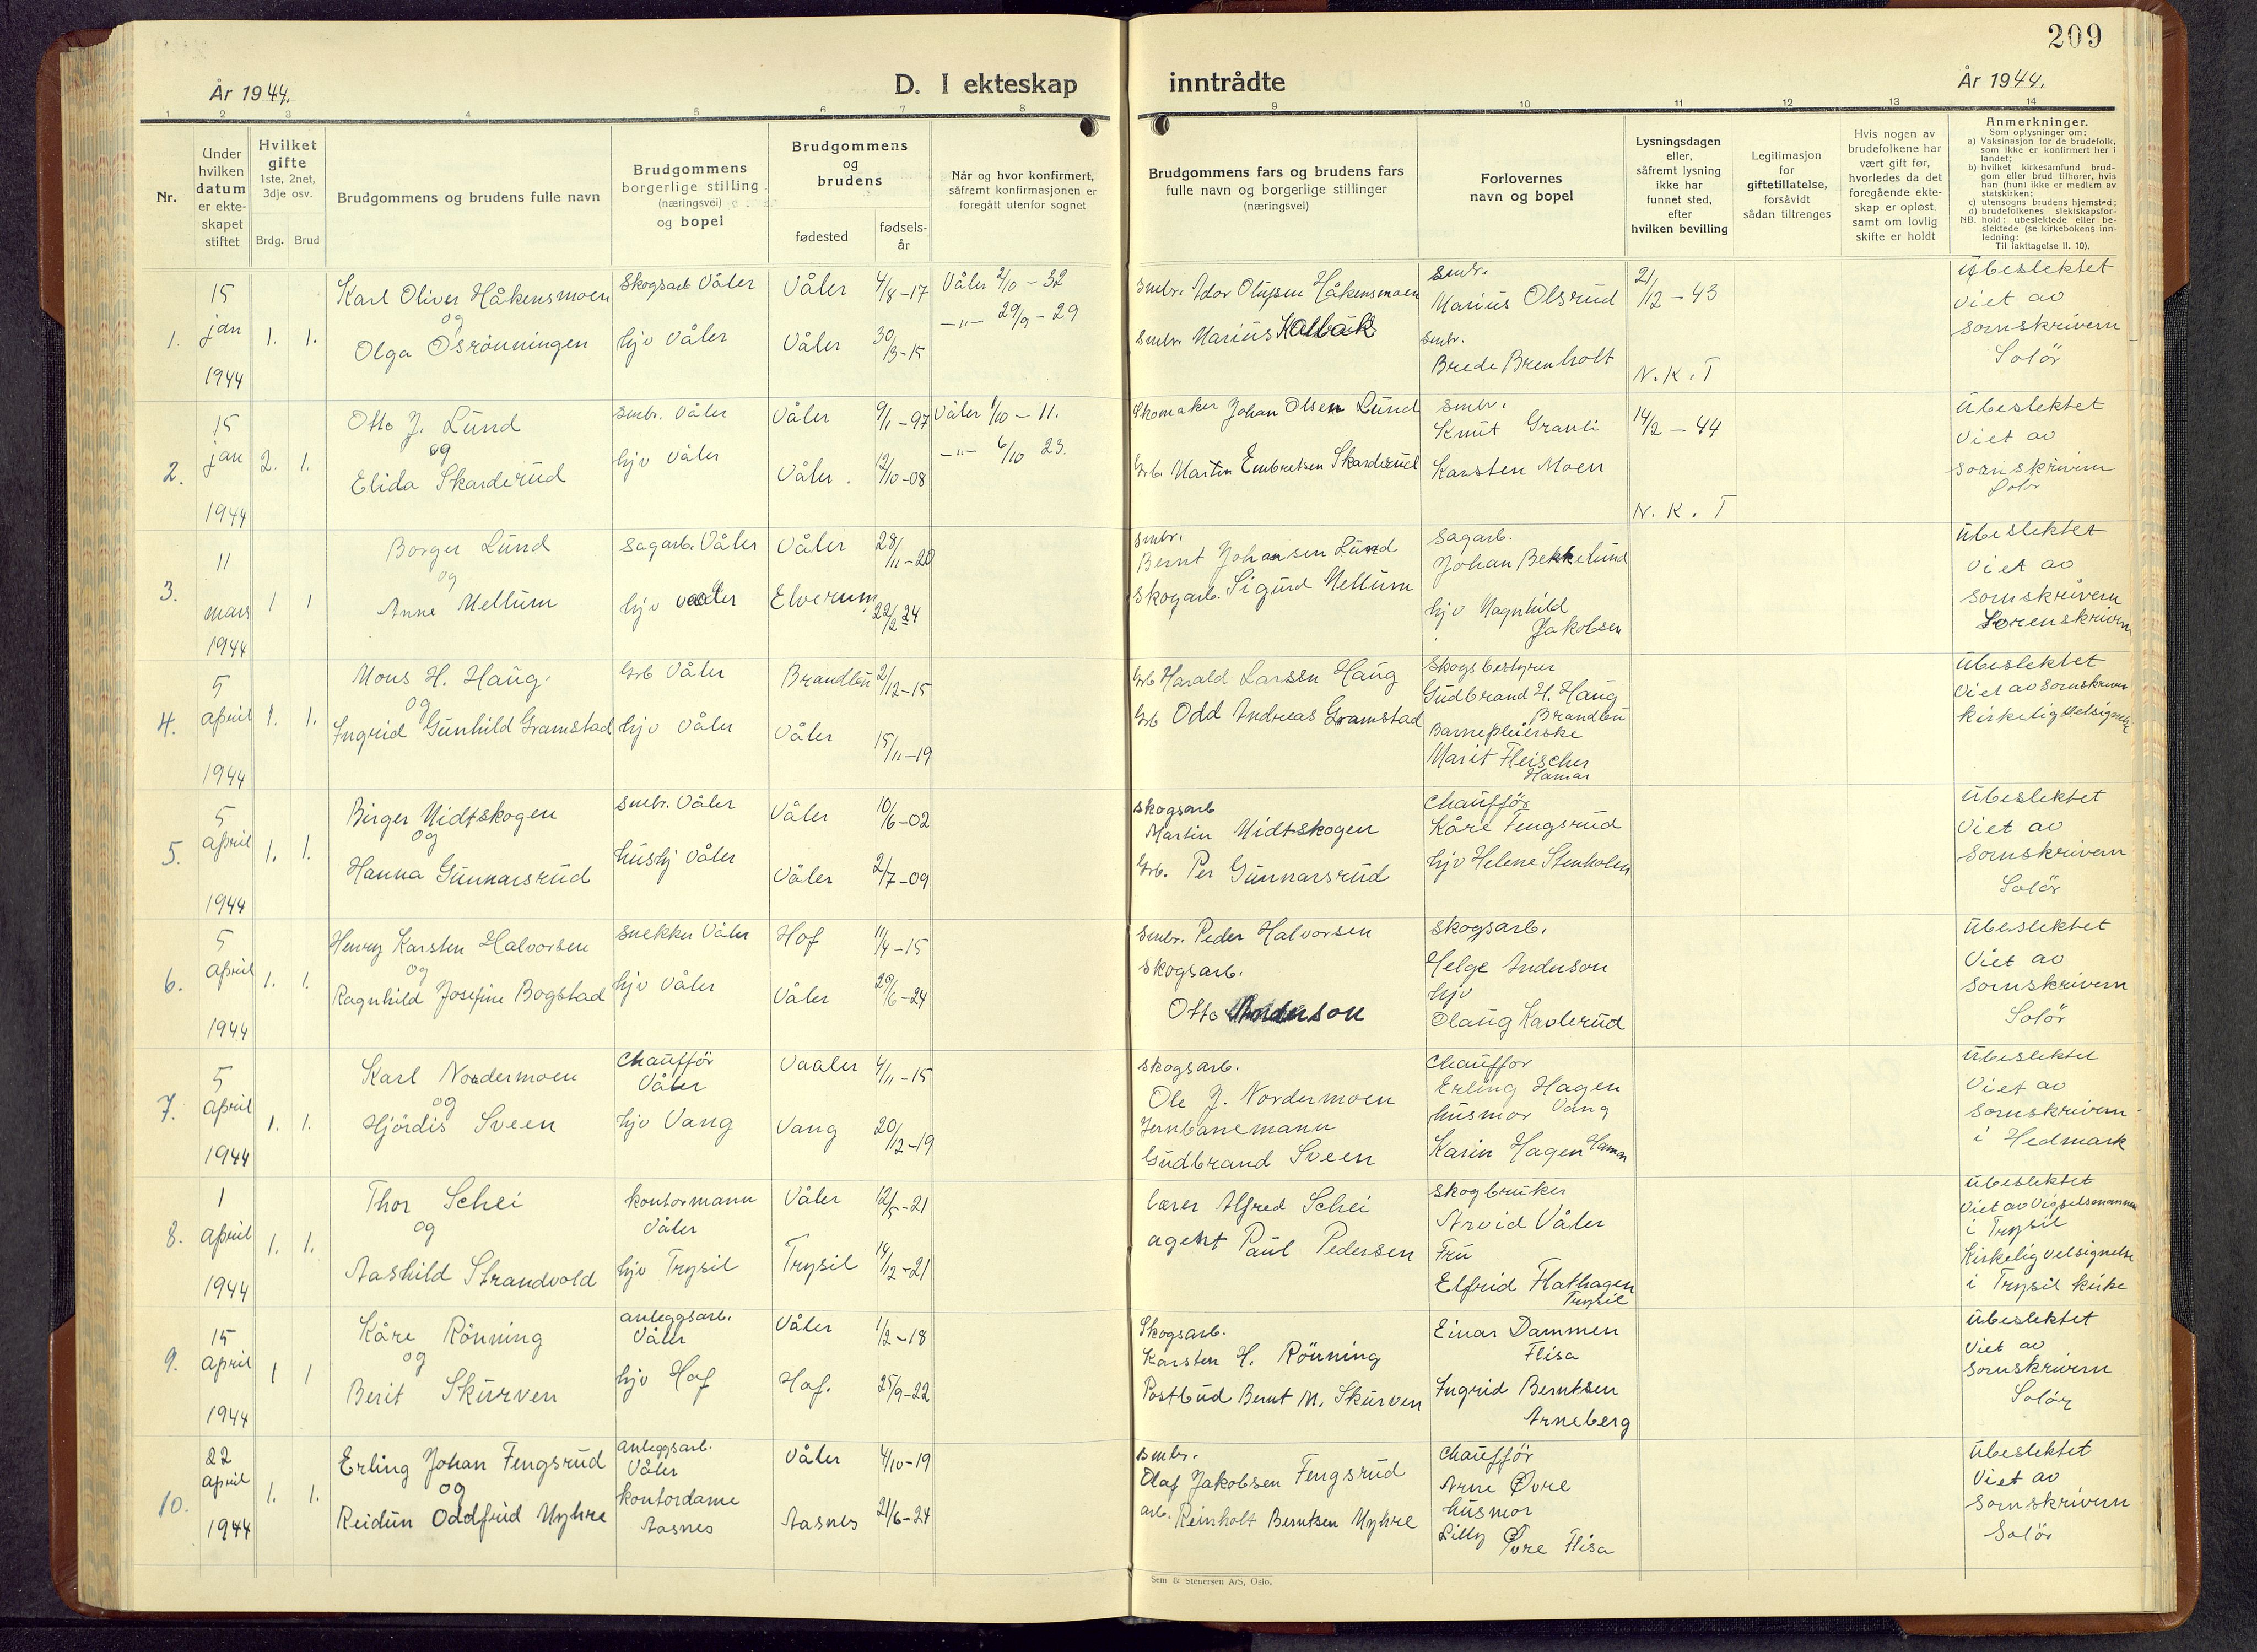 209
År 1944.
D. I ekteskap
inntrådte
År 1944.
1 2 3 4 5 6 7 8 9 10 11 12 13 14
Nr.
Under
hvilken
datum
er ekte-
skapet
stiftet
Hvilket
gifte
1ste, 2net,
3dje osv.
Brdg. Brud
Brudgommens og brudens fulle navn
Brudgommens
borgerlige stilling
(næringsvei)
og bopel
Brudgommens
og
brudens
fødested
fødsels-
år
Når og hvor konfirmert,
såfremt konfirmasjonen er
foregått utenfor sognet
Brudgommens fars og brudens fars
fulle navn og borgerlige stillinger
(næringsvei)
Forlovernes
navn og bopel
Lysningsdagen
eller,
såfremt lysning
ikke har
funnet sted,
efter
hvilken bevilling
Legitimasjon
for
giftetillatelse,
forsåvidt
sådan tiltrenges
Hvis nogen av
brudefolkene har
vært gift før,
hvorledes da det
foregående ekte-
skap er opløst,
samt om lovlig
skifte er holdt
Anmerkninger.
Som oplysninger om:
a) Vaksinasjon for de brudefolk,
som ikke er konfirmert her i
landet;
b) hvilket kirkesamfund brud-
gom eller brud tilhører, hvis
han (hun) ikke er medlem av
statskirken;
c) utensogns brudens hjemsted;
d) brudefolkenes slektskapsfor-
NB. hold: ubeslektede eller be-
slektede (se kirkebokens inn-
ledning:
Til iakttagelse II. 10).
1.
15
jan
1944
1. 1.
Karl Oliver Håkensmoen
og
Olga Osrønningen
Skogsarb Våler
hjv Våler
Våler 4/8-17
Våler 30/3-15
Våler 2/10-32
-"- 29/9-29
smbr. Ador Olufsen Håkensmoen
smbr. Marius Kolbäk
smbr.
Marius Olsrud
smbr.
Brede Brenholt
21/12-43
N.K.T
Ubeslektet
viet av
sornskrivern
Solör
2.
15
jan
1944
2. 1.
Otto J. Lund
og
Elida Skarderud
smbr. Våler
hjv Våler
Våler 9/1-97
Våler. 12/10-08
Våler 1/10-11.
-"- 6/10 23.
Skomaker Johan Olsen Lund
Grb. Martin Embretsen Skarderud
smbr.
Knut Granli
Karsten Moen
14/2-44
N.K.T
Ubeslektet
Viet av
sornskrivern
Solør
3.
11
mars
1944
1 1
Borger Lund
og
Anne Mellum
sagarb. Våler
hjv vaaler
Våler 28/11-20
Elverum 22/2 24
smbr.
Bernt Johansen Lund
Skogarb. Sigurd Mellum
sagarb.
Johan Bekkelund
hjv Magnhild
Jakobsen
Ubeslektet
viet av
sornskrivern
Sorenskrivern
4.
5
april
1944
1. 1.
Mons H. Haug.
og
Ingrid Gunhild Gramstad
Grb Våler
hjv Våler
Brandbu 2/12-15
Våler 15/11-19
Grb Harald Larsen Haug
Grb Odd Andreas Gramstad
Skogsbestyrer
Gudbrand H. Haug
Brandbu
Barnepleierske
Marit Fleischer
Hamar
Ubeslektet
Viet av sornskriver
kirkelig velsignelse
5.
5
april
1944
1. 1.
Birger Midtskogen
og
Hanna Gunnarsrud
smbr. Våler
hushj Våler
Våler 10/6-02
Våler 2/7-09
skogsarb
Martin Midtskogen
Grb. Per Gunnarsrud
Chauffør
Kåre Fengsrud
hjv Helene Stenholen
Ubeslektet
Viet av
Sornskrivern
Solör
6.
5
april
1944
1. 1.
Henry Karsten Halvorsen
og
Ragnhild Josefine Bogstad
snekker Våler
hjv Våler
Hof 11/4-15
Våler 20/6-24
smbr. Peder Halvorsen
skogsarb.
Otto Anderson
skogsarb.
Helge Anderson
hjv
Olaug Kavlerud
Ubeslektet
Viet av
sornskrivern
Solör
7.
5
april
1944
1. 1.
Karl Nordermoen
og
Hjördis Sveen
Chaufför
Våler
hjv Vang
Vaaler 4/11-15
Vang 20/12-19
skogsarb.
Ole J. Nordermoen
Jernbanemann
Gudbrand Sveen
Chauffor
Erling Hagen
husmor Vang
Karin Hagen Hamar
Ubeslektet
Viet av
sornskrivern
i Hedmark
8.
1
april
1944
1. 1.
Thor Schei
og
Aashild Strandvold
kontormann
Våler
hjv Trysil
Våler 12/5-21
Trysil 14/12-21
lærer Alfred Schei
agent Paul Pedersen
skogbruker
Arvid Våler
Fru
Elfrid Flathagen
Trysil
Ubeslektet
Viet av Vigselsmannen
i Trysil
Kirkelig velsignelse
i Trysil kirke
9.
15
april
1944
1 1
Kåre Rönning
og
Berit Skurven
anleggsarb.
Våler
hjv Hof
Våler 1/2-18
Hof. 25/9-22
Skogsarb.
Karsten H. Rönning
Postbud Bernt M. Skurven
Einar Dammen
Flisa
Ingrid Berntsen
Arneberg
Ubeslektet
Viet av
sornskrivern
Solør
10.
22
april
1944
1. 1.
Erling Johan Fengsrud
og
Reidun Oddfrid Myhre
anleggsarb.
Våler
kontordame
Aasnes
Våler 4/10-19
Aasnes 21/6-24
smbr.
Olaf Jakobsen Fengsrud
arb. Reinholt Berntsen Myhre
Chaufför
Arne Øvre
husmor
Lilly Øvre Flisa
Ubeslektet
Viet av
sornskrivern
Solör
Sem & Stenersen A/S, Oslo.